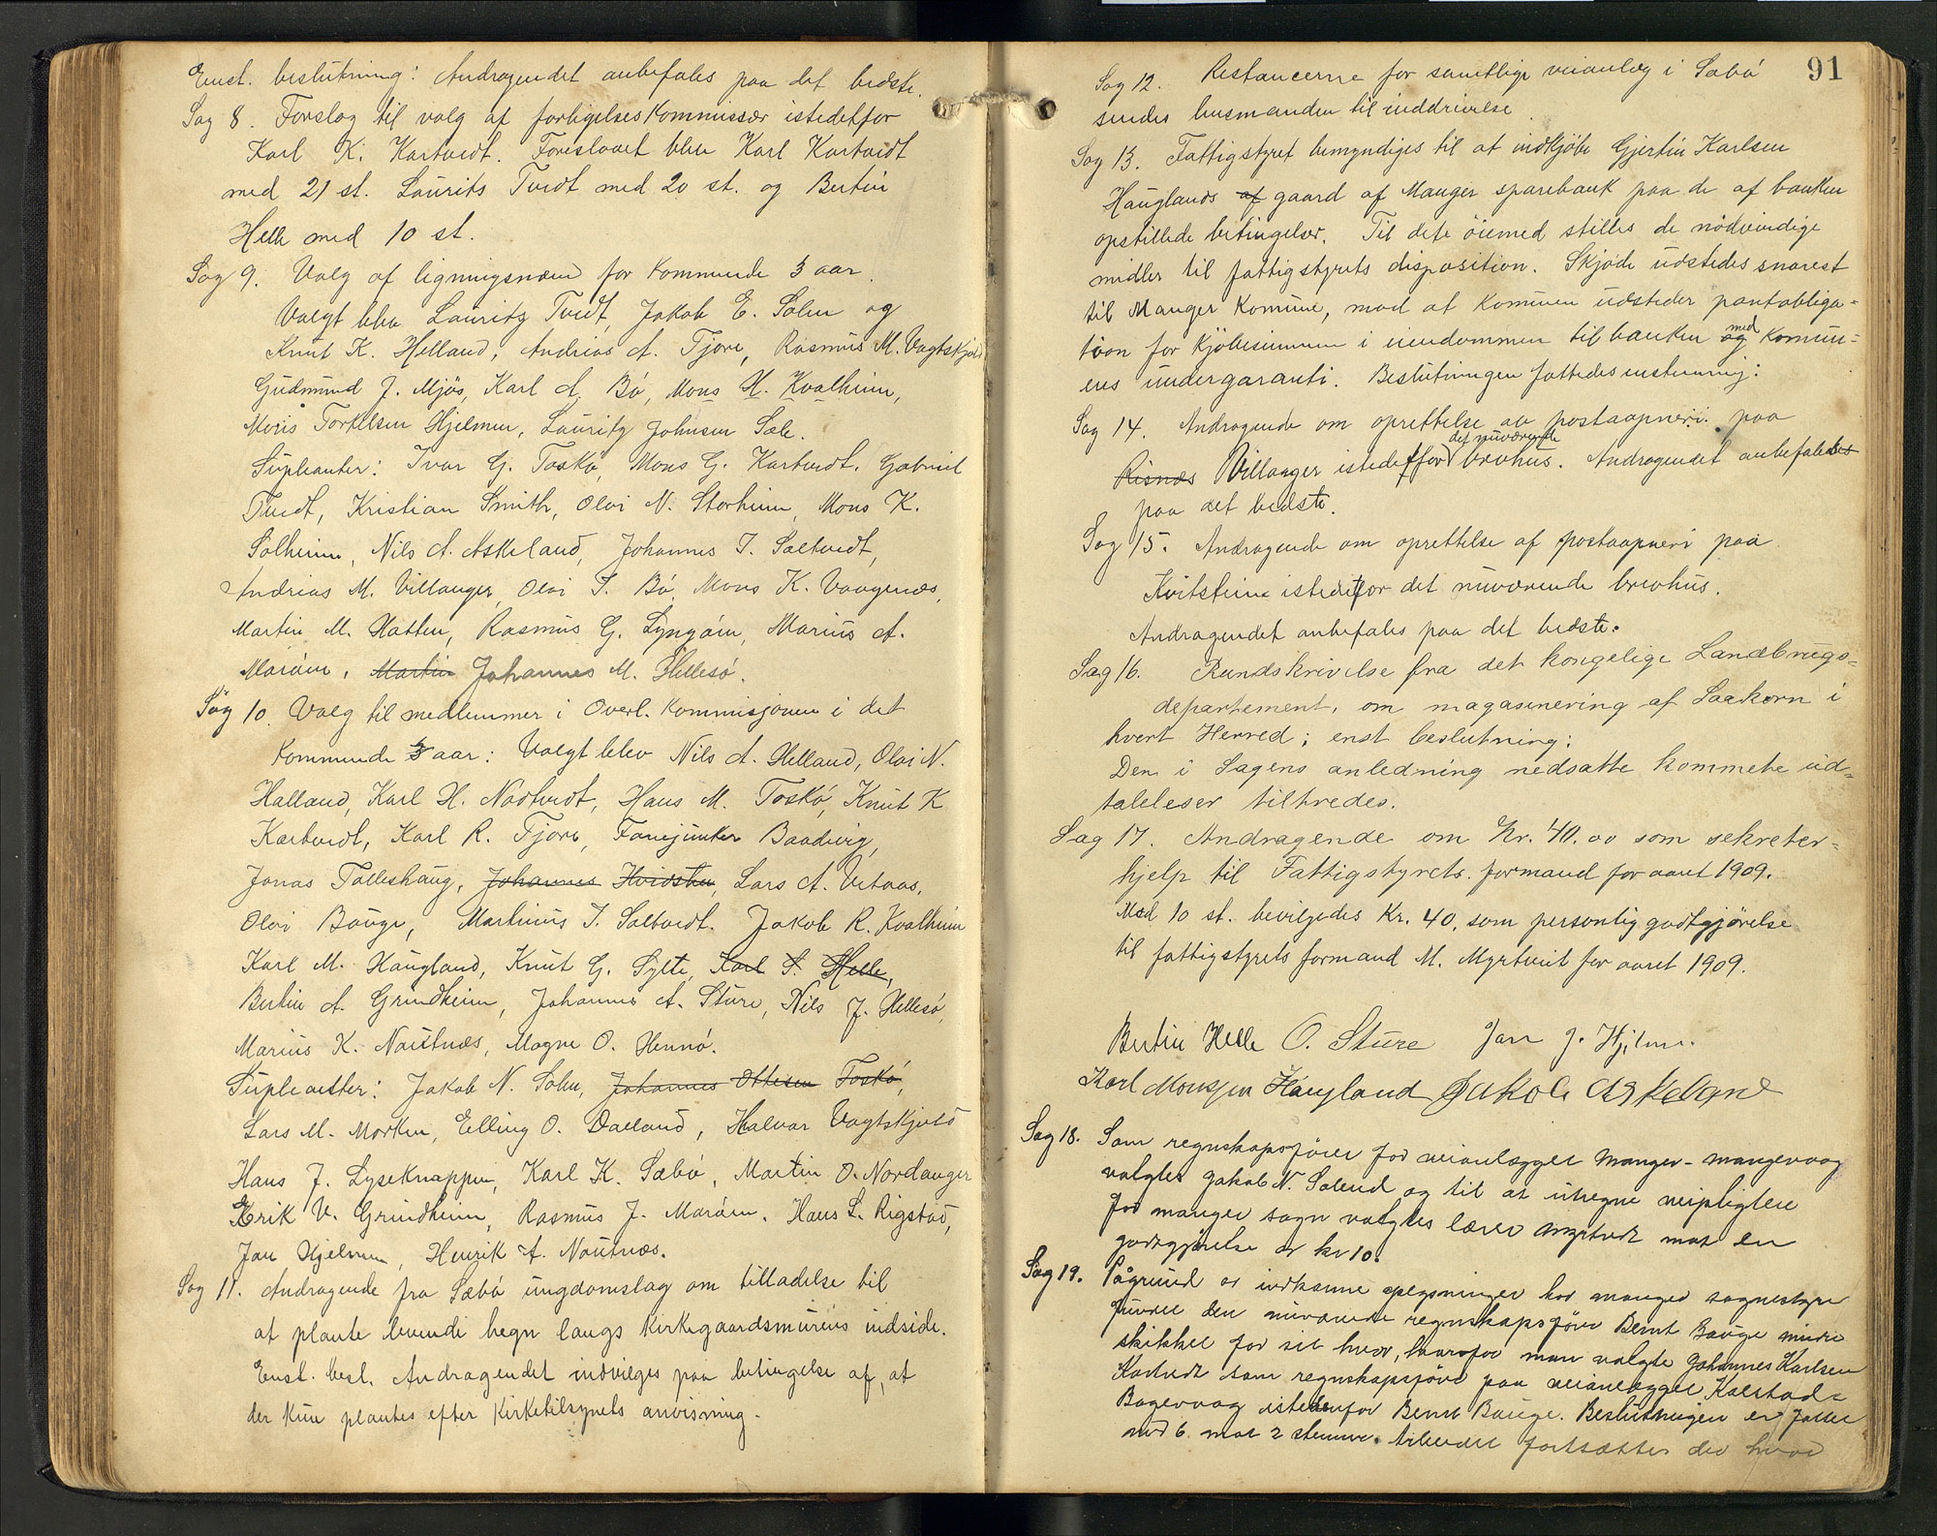 Enst. beslutning: Andragendet anbefales paa det bedste.
Sag 8. Forslag til valg af forligelseskommissær istedetfor
Karl K. Kartveidt. Foreslaaet blev Karl Kartveidt
med 21 st. Laurits Tveidt med 20 st. og Bertin
Helle med 10 st.
Sag 9. Valg af ligningsnævnd for kommende 3 aar.
Valgt blev Lauritz Tveidt, Jakob E. Solem og
Knut K. Helland, Andreas A. Fjore, Rasmus M. Vagtskjold
Gudmund J. Mjøs, Karl A. Bø, Mons H. Kvalheim,
Mons Torkelsen Hjelmen, Lauritz Johnsen Sæle.
Supleanter: Ivar G. Toskø, Mons G. Kartveidt. Gabriel
Tveidt, Kristian Smith, Olai N. Storheim, Mons K.
Solheim, Nils A. Askeland, Johannes T. Sæltveidt,
Andreas M. Villanger, Olai T. Bø, Mons K. Vaagenæs,
Martin M. Hatten, Rasmus G. Lyngøien, Marius A.
Marøien, Martin Johannes M. Hellesø.
Sag 10. Valg til medlemmer i Overl. kommisjonen i det
kommende 3 aar: Valgt blev Nils A. Helland, Olai N.
Halland, Karl H. Nodtveidt, Hans M. Toskø, Knut K
Kartveidt, Karl R. Fjore, Fanejunker Baadsvig,
Jonas Tolleshaug, Johannes Hvidsten, Lars A. Vetaas,
Olai Bauge, Martinus T. Sæltveidt. Jakob R. Kvalheim
Karl M. Haugland, Knut G. Sylte, Karl S. Helle,
Bertin A. Grindheim, Johannes A. Sture, Nils J. Hellesø,
Marius K. Nautnæs, Magne O. Hennø.
Supleanter: Jakob N. Solem, Johannes Ottesen Toskø,
Lars M. Morken, Elling O. Dalland, Halvar Vagtskjold
Hans J. Lyseknappen, Karl K. Sæbø, Martin O. Nordanger
Erik V. Grindheim, Rasmus J. Marøien. Hans L. Rigstad,
Jan Hjelmen, Henrik A. Nautnæs.
Sag 11. Andragende fra Sæbø ungdomslag om tilladelse til
at plante levende hegn langs kirkegaardsmurens indside.
Enst. besl. Andragendet indvilges paa betingelse af, at
der kun plantes efter kirketilsynets anvisning.
91
Sag 12. Restancerne for samtlige veianlæg i Sæbø
sendes lensmanden til inddrivelse.
Sag 13. Fattigstyret bemyndiges til at indkjøbe Gjertin Karlsen
Hauglands af gaard af Manger sparebank paa de af banken
opstillede betingelser. Til dete øiemed stilles de nødvendige
midler til fattigstyrets disposition. Skjøde udstedes snarest
til Manger Komune, mod at komunen udsteder pantobliga-
tion for kjøbesummen i eiendommen til banken og med komun-
ens undergaranti. Beslutningen fattedes enstemmig:
Sag 14. Andragende om oprettelse av postaapneri paa
Risnæs Villanger istedetfor det nuværende brevhus. Andragendet anbefales
paa det bedste.
Sag 15. Andragende om oprettelse af postaapneri paa
Kvitstein istedetfor det nuværende brevhus.
Andragendet anbefales paa det bedste.
Sag 16. Rundskrivelse fra det kongelige Landbrugs-
departement, om magasinering af Saakorn i
hvert Herred; enst beslutning:
Den i Sagens anledning nedsatte kommete ud-
taleleser tiltredes.
Sag 17. Andragende om Kr. 40.00 som sekreter-
hjelp til Fattigstyrets formand for aaret 1909.
Med 10 st. bevilgedes Kr. 40, som personlig godtgjørelse
til fattigstyrets formand M. Myrtveit for aaret 1909.
Bertin Helle O. Sture Jan J. Hjelme.
Karl Monsen Haugland Jakob Askeland
Sag 18. Som regnskapsfører for veianlægget Manger-mangevaag
valgtes Jakob N. Solend og til at utregne veipligten
for manger sogn valgtes lærer Myrtvedt mot en
godtgjørelse av kr 10.
Sag 19. Pågrund av indkomne oplysninger har manger sognestyre
funnet den nuværende regnskapsfører Bernt Bauge mindre
skikket for sit hverv, hvorfor man valgte Johannes Karlsen
Kartvedt som regnskapsfører paa veianlægget Kolstad-
Bøgevaag istedenfor Bernt Bauge. Beslutningen er fattet
med 6 mot 2 stemmer. Arbeidet fortsættes der hvor